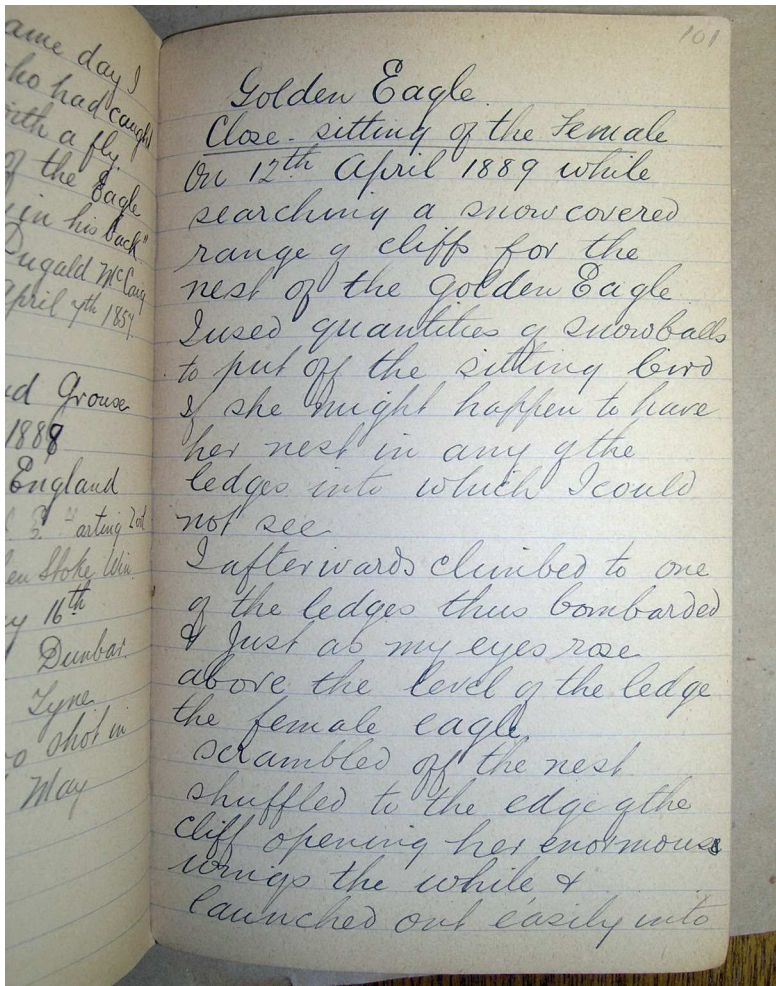 ame day I
ho had caught
ith a fly
of the Eagle
in his back"
Dugald McCaig
April 7th 1857
d Grouse
1888
England
arting
en Stoke Win
y 16th
Dunbar
Tyne
o shot in
May
101
Golden Eagle.
Close-sitting of the Female
On 12th April 1889 while
searching a snow covered
range of cliffs for the
nest of the Golden Eagle
I used quantities of snowballs
to put off the sitting bird
if she might happen to have
her nest in any of the
ledges into which I could
not see
I afterwards climbed to one
of the ledges thus bombarded
& Just as my eyes rose
above the level of the ledge
the female eagle
scrambled off the nest
shuffled to the edge of the
cliff opening her enormous
wings the while &
launched out easily into